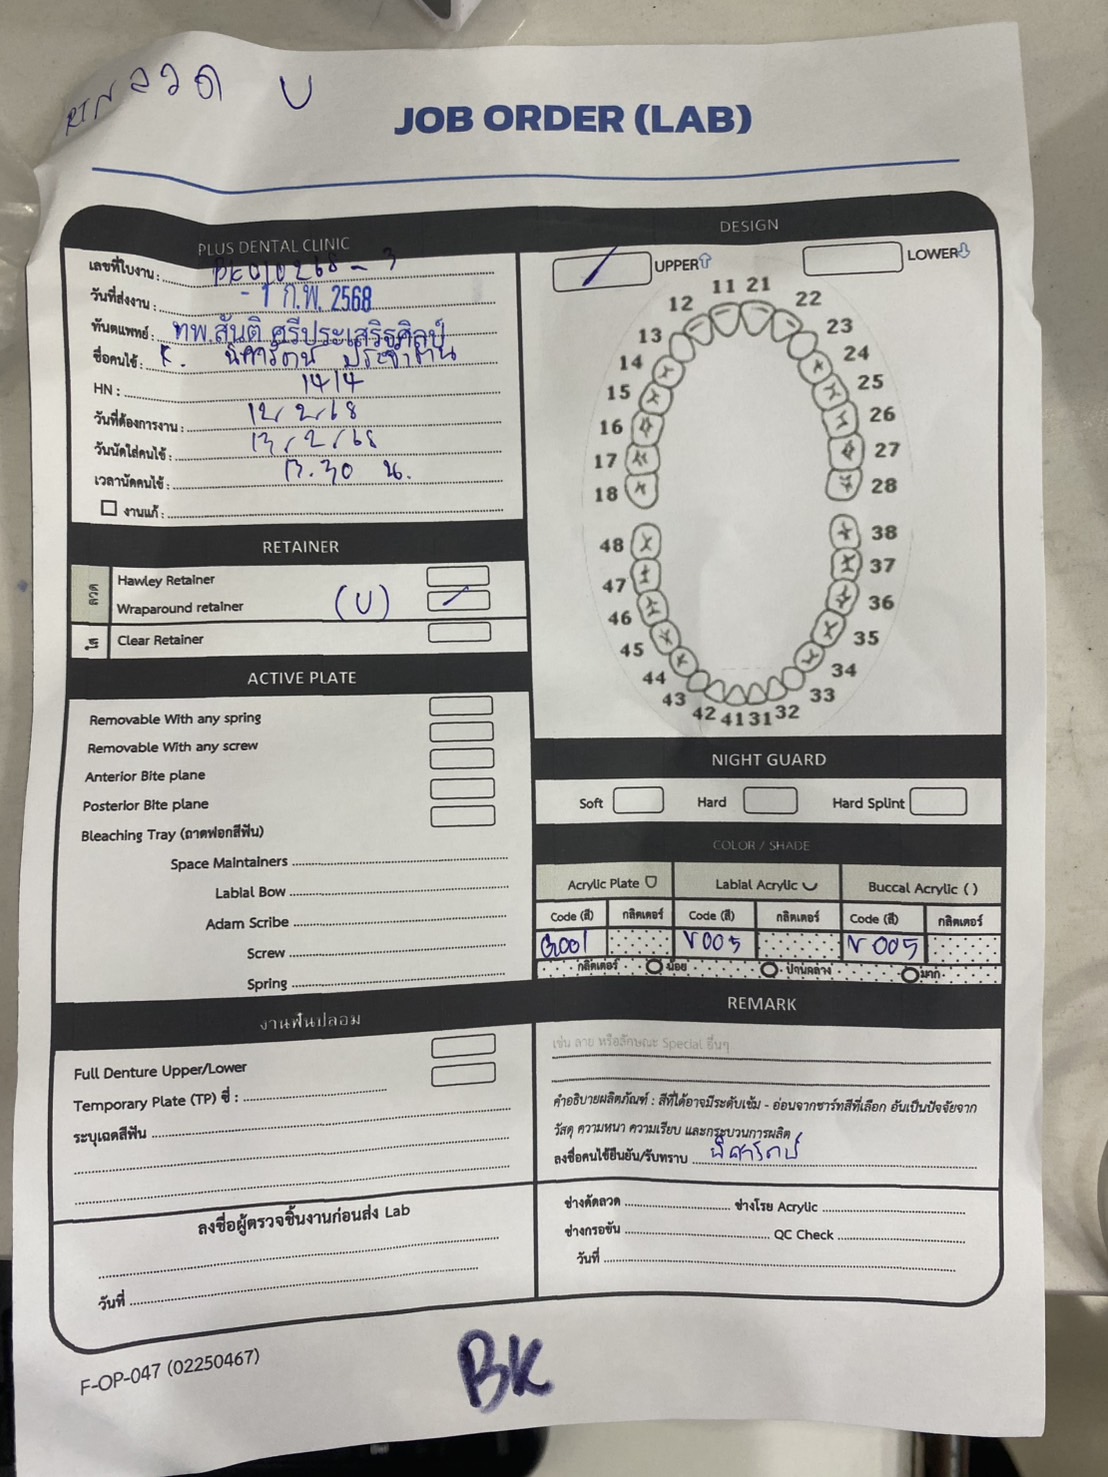 RTN ลวด U
JOB ORDER (LAB)
PLUS DENTAL CLINIC
เลขที่ใบงาน : BK010268 - 3
วันที่ส่งงาน : - 1 ก.พ. 2568
ทันตแพทย์ : ทพ.สันติ ศรีประเสริฐศิลป์
ชื่อคนไข้ : K. นิศารัตน์ ประจำงาน
HN : 1414
วันที่ต้องการงาน : 12/2/68
วันนัดใส่คนไข้ : 13/2/68
เวลานัดคนไข้ : 13.30 น.
งานแก้ :
RETAINER
ลวด
Hawley Retainer
Wraparound retainer (U)
ใส
Clear Retainer
ACTIVE PLATE
Removable With any spring
Removable With any screw
Anterior Bite plane
Posterior Bite plane
Bleaching Tray (ถาดฟอกสีฟัน)
Space Maintainers
Labial Bow
Adam Scribe
Screw
Spring
งานฟันปลอม
Full Denture Upper/Lower
Temporary Plate (TP) ซี่ :
ระบุเฉดสีฟัน
ลงชื่อผู้ตรวจชิ้นงานก่อนส่ง Lab
วันที่
DESIGN
UPPER LOWER
11 21
12 22
13 23
14 24
15 25
16 26
17 27
18 28
48 38
47 37
46 36
45 35
44 34
43 33
42 41 31 32
NIGHT GUARD
Soft Hard Hard Splint
COLOR / SHADE
Acrylic Plate Labial Acrylic Buccal Acrylic ( )
Code (สี) กลิตเตอร์ Code (สี) กลิตเตอร์ Code (สี) กลิตเตอร์
G001 V005 V005
กลิตเตอร์ น้อย ปานกลาง มาก
REMARK
เช่น ลาย หรือลักษณะ Special อื่นๆ
คำอธิบายผลิตภัณฑ์ : สีที่ได้อาจมีระดับเข้ม - อ่อนจากชาร์ทสีที่เลือก อันเป็นปัจจัยจาก
วัสดุ ความหนา ความเรียบ และกระบวนการผลิต
ลงชื่อคนไข้ยืนยัน/รับทราบ นิศารัตน์
ช่างดัดลวด ช่างโรย Acrylic
ช่างกรอขัน QC Check
วันที่
F-OP-047 (02250467)
BK